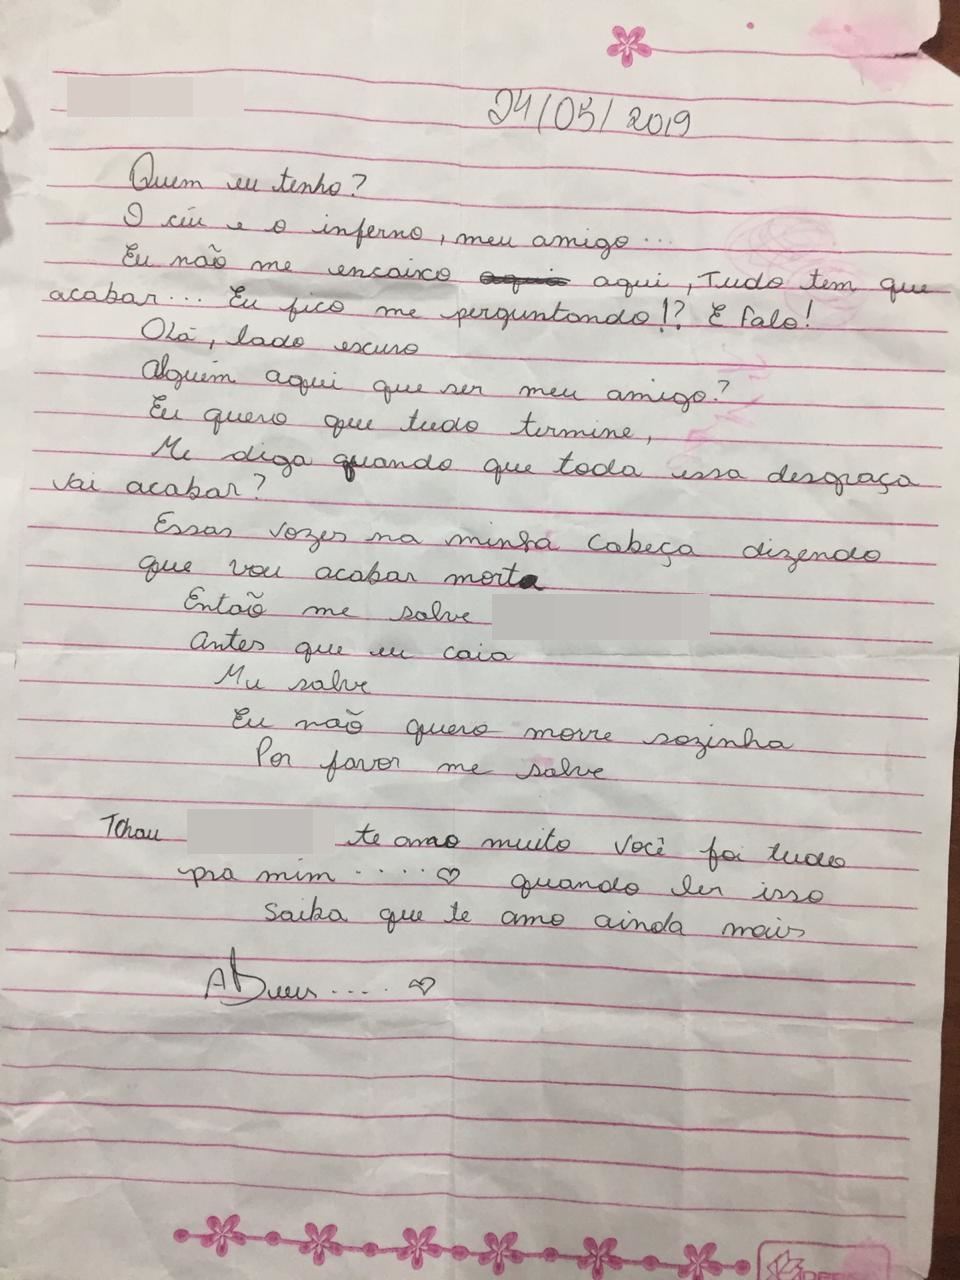 24/05/2019
Quem eu tenho?
O céu e o inferno, meu amigo...
Eu não me encaixo aqui aqui, Tudo tem que
acabar... Eu fico me perguntando!? E falo!
Olá, lado escuro
Alguém aqui que ser meu amigo?
Eu quero que tudo termine,
Me diga quando que toda essa desgraça
vai acabar?
Essas vozes na minha cabeça dizendo
que vou acabar morta
Entaõ me salve
Antes que eu caia
Me salve
Eu não quero morre sozinha
Por favor me salve
Tchau te amo muito você foi tudo
pra mim ....♡ quando ler isso
Saiba que te amo ainda mais
ADeus.... ♡